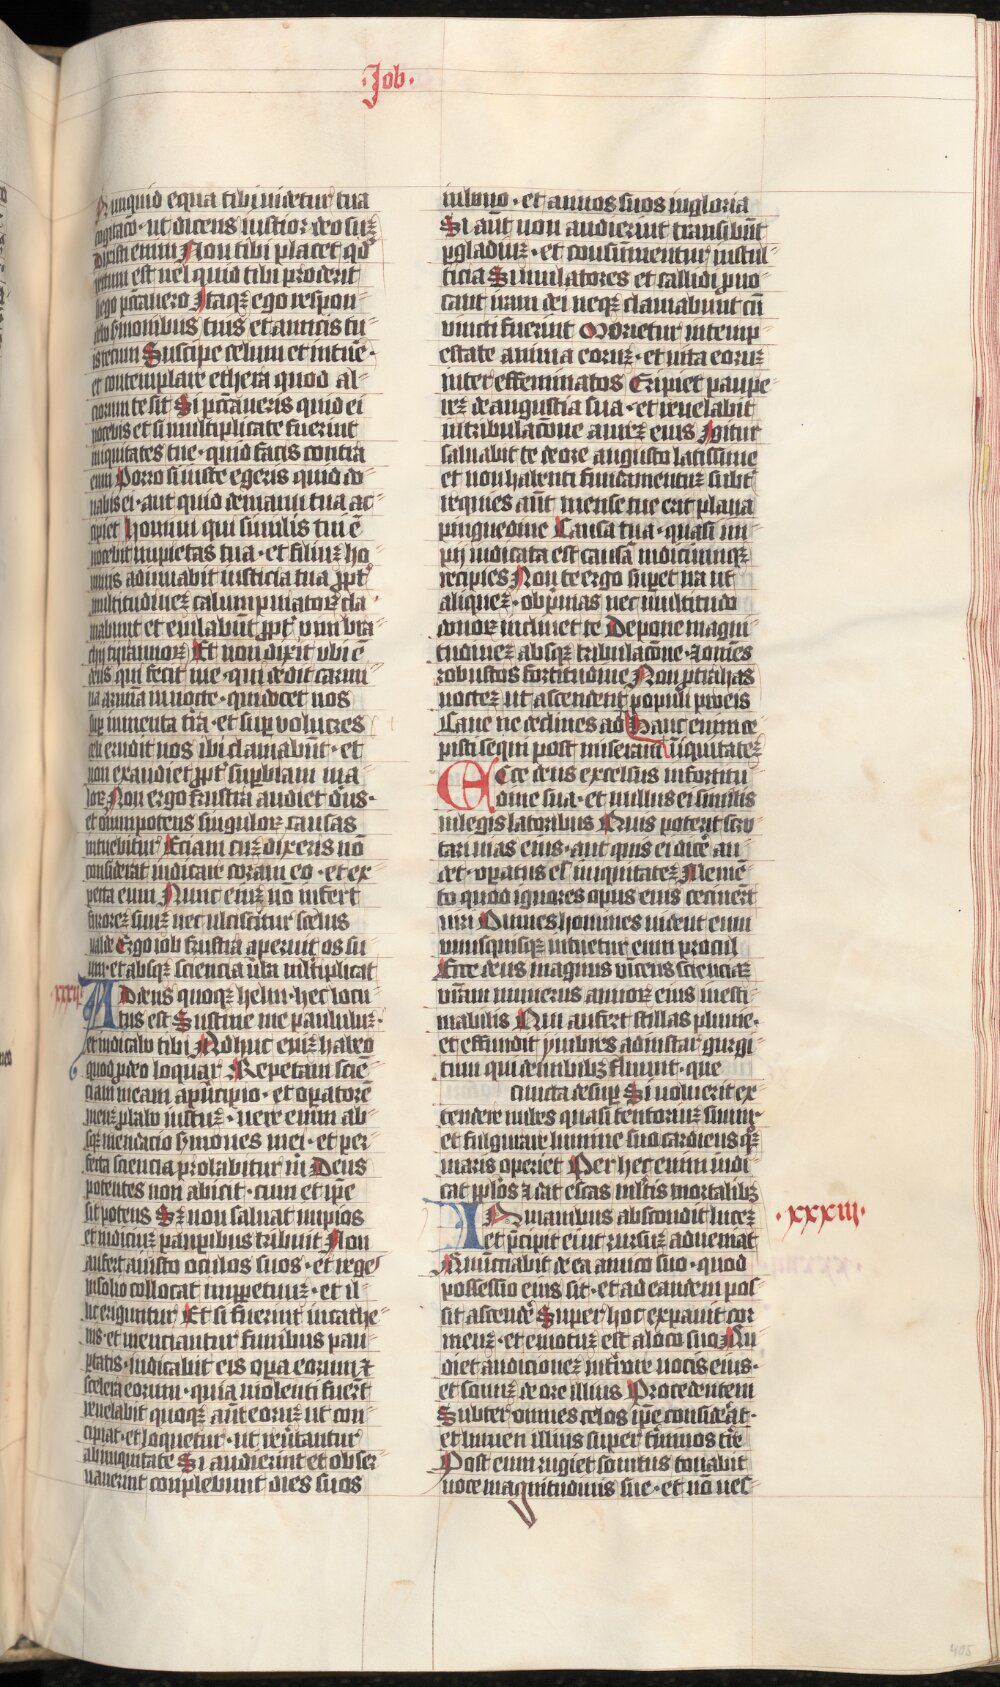 ·Job·
Nunquid equa tibi videtur tua
cogitaco· ut diceres iustior deo suz
Dixisti enim Non tibi placet qd
rectum est vel quid tibi proderit
si ego pccavero Itaqz ego respon
debo smonibus tuis et amicis tu
is tecum Suscipe celum et intue·
et contemplare ethera quod al
cior te sit Si pccaveris quid ei
nocebis et si multiplicate fuerint
iniquitates tue· quid facis contra
eum Porro si iuste egeris quid do
nabis ei· aut quid de manu tua ac
cipiet Homini qui similis tui e
nocebit impietas tua· et filiuz ho
minis adiuvabit iusticia tua ppt
multitudinez calumpniatorz cla
mabunt et eiulabunt ppt vim bra
chij tyrannorz Et non dixit ubi e
deus qui fecit me· qui dedit carmi
na in nocte· qui docet nos
sup iumenta tra· et sup volucres
celi erudit nos ibi clamabunt· et
non exaudiet ppt supbiam ma
lorz Non ergo frustra audiet deus·
et omnipotens singulorz causas
intuebitur Etiam cuz dixeris no
considerat iudicare coram eo· et ex
pecta eum Nunc enim no infert
furorez suuz nec ulciscitur scelus
valde Ergo iob frustra aperuit os su
um· et absqz sciencia vba multiplicat
xxxvi
Addens quoqz heliu· hec locu
tus est Sustine me paululuz·
et indicabo tibi Adhuc eniz habeo
quod p deo loquar Repetam scie
ciam meam a principio· et opatore
meuz pbabo iustuz· vere enim ab
sqz mendacio smones mei· et per
fecta sciencia probabitur tibi Deus
potentes non abicit· cum et ipe
sit potens Sz non salvat impios
et iudiciuz paupibus tribuit Non
aufert a iusto oculos suos· et reges
in solio collocat in ppetuuz· et il
lic eriguntur Et si fuerint in cathe
nis· et vinciantur funibus pau
ptatis· indicabit eis opa eorum z
scelera eorum· quia violenti fuert
revelabit quoqz aurem eoruz ut cor
ripiat· et loquetur· ut revtantur
ab iniquitate Si audierint et obser
vaverint complebunt dies suos
in bono· et annos suos in gloria
Si aut non audierint transibunt
p gladiuz· et consumentur in stul
ticia Simulatores et callidi pvo
cant iram dei neqz clamabunt cu
vincti fuerint Morietur in temp
estate anima eoruz· et vita eoruz
inter effeminatos Eripiet paupe
rez de angustia sua· et revelabit
in tribulacone aurez eius Igitur
salvabit te de ore angusto latissime
et non habenti fundamentuz subt
requies aut mense tue erit plena
pinguedine Causa tua· quasi im
pij iudicata est causa iudiciumqz
recipies Non te ergo supet ira ut
aliquez· obprimas nec multitudo
donorz inclinet te Depone magni
tudinez absqz tribulacone· z omnes
robustos fortitudine Non ptrahas
noctez ut ascendent populi pro eis
Cave ne declines ad Hanc enim ce
pisti sequi post miseriam iniquitatez
Ecce deus excelsus in fortitu
dine sua· et nullus ei similis
in legislatoribus Quis poterit scru
tari vias eius· aut quis ei dice au
det· opatus es iniquitatez Meme
to quod ignores opus eius cecinert
viri Omnes homines vident eum
unusquisqz intuetur eum procul
Ecce deus magnus vincens scienciaz
nram numerus annorz eius inesti
mabilis Qui aufert stillas pluvie·
et effundit ymbres ad instar gurgi
tum qui de nubibz fluunt· que
cuncta desup Si voluerit ex
tendere nubes quasi tentoriuz suum·
et fulgurare lumine suo cardines qz
maris operiet Per hec enim iudi
cat pplos z dat escas mltis mortalibz
In manibus abscondit lucez
·xxxvii·
et pcipit ei ut rursuz adveniat
Annunciabit de ea amico suo· quod
possessio eius sit· et ad eandem pos
sit ascende Super hoc expavit cor
meuz· et emotuz est a loco suo Au
diet audicionez in terrore vocis eius·
et sonuz de ore illius Procedentem
Subter omnes celos ipe considerat·
et lumen illius super tminos tre
Post eum rugiet sonitus tonabit
voce magnitudinis sue· et no nes
405